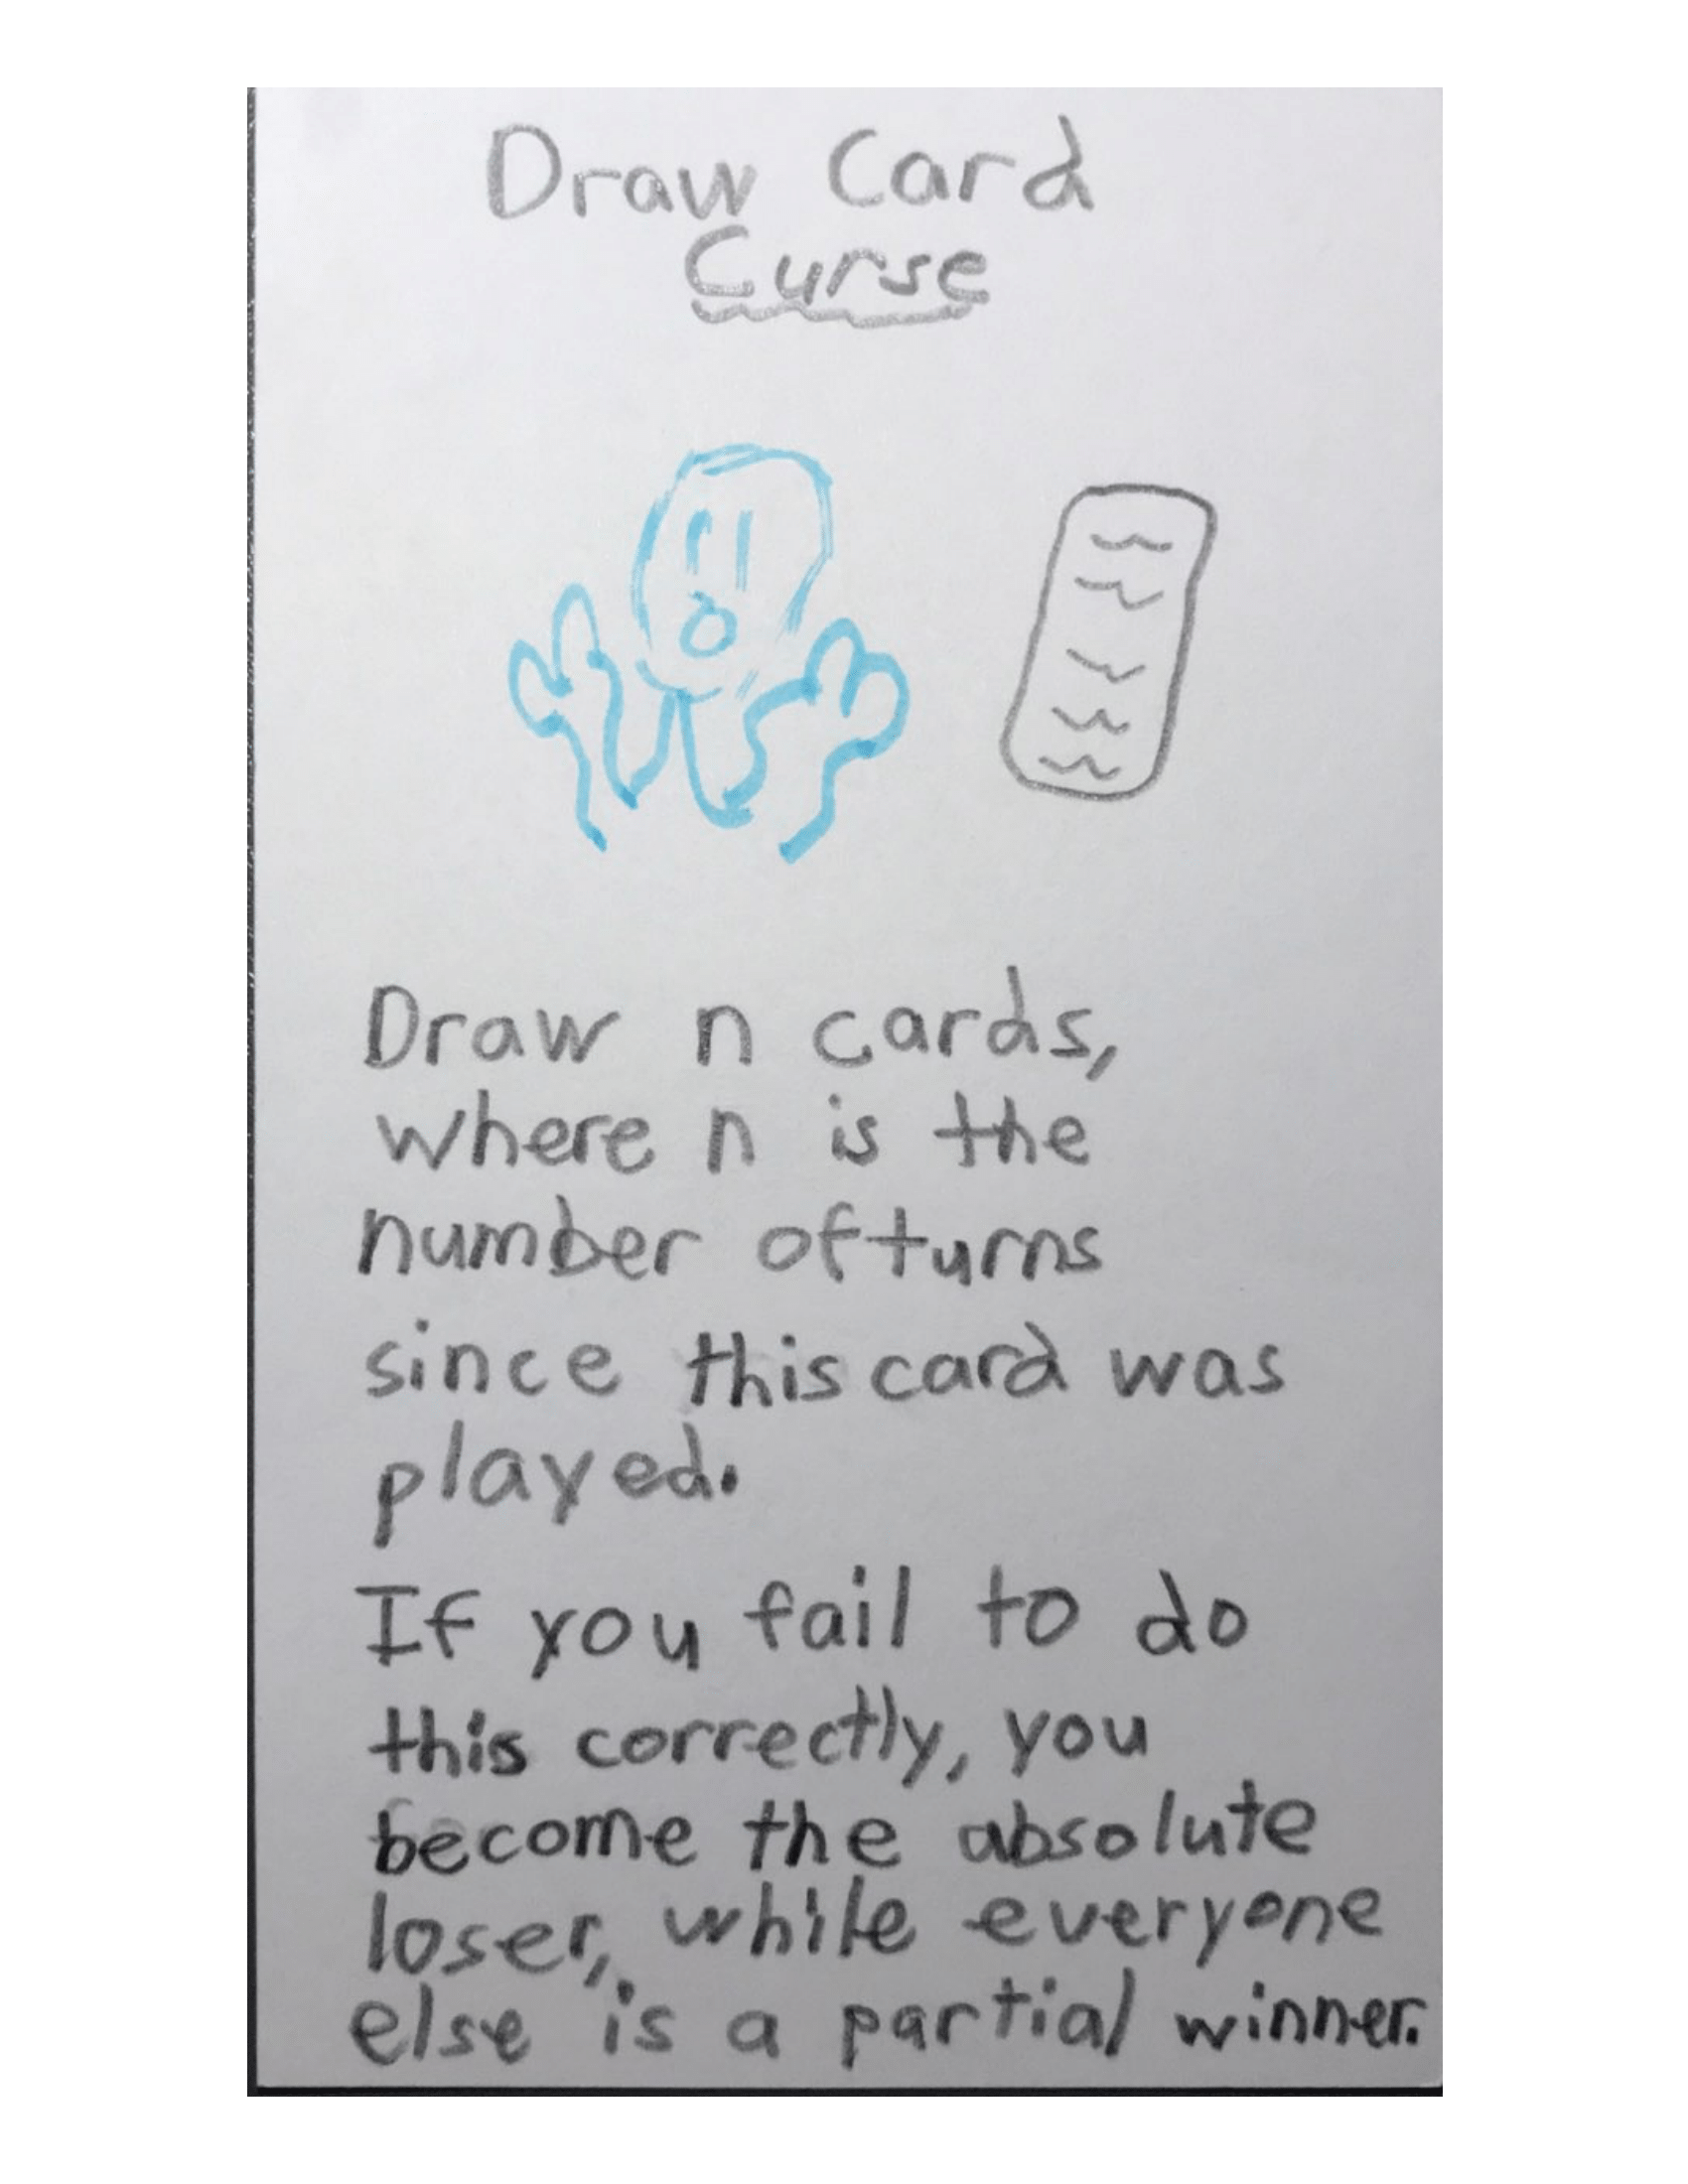 Draw Card
Curse
Draw n cards,
where n is the
number of turns
since this card was
played.
If you fail to do
this correctly, you
become the absolute
loser, while everyone
else is a partial winner.